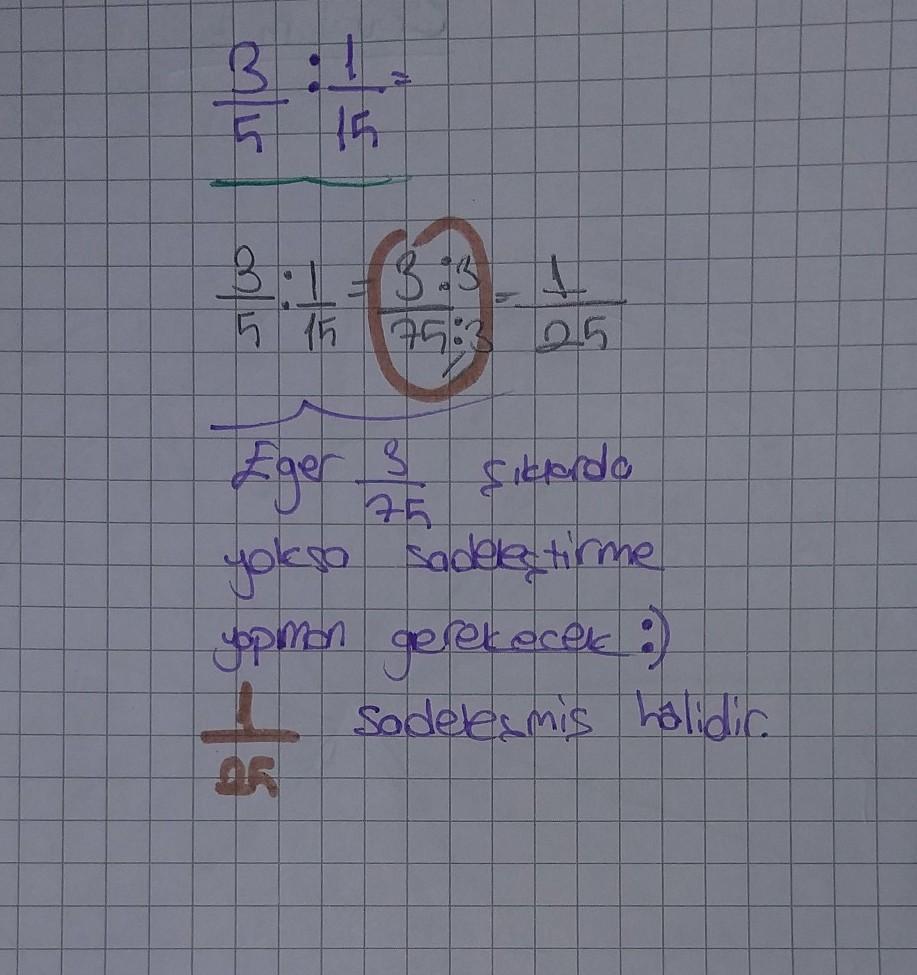 3/5 : 1/15 =
3/5 : 1/15 = 3:3/75:3 = 1/25
Eger 3/75 şıklarda
yoksa sadeleştirme
yapman gerekecek :)
1/25 sadeleşmiş hâlidir.